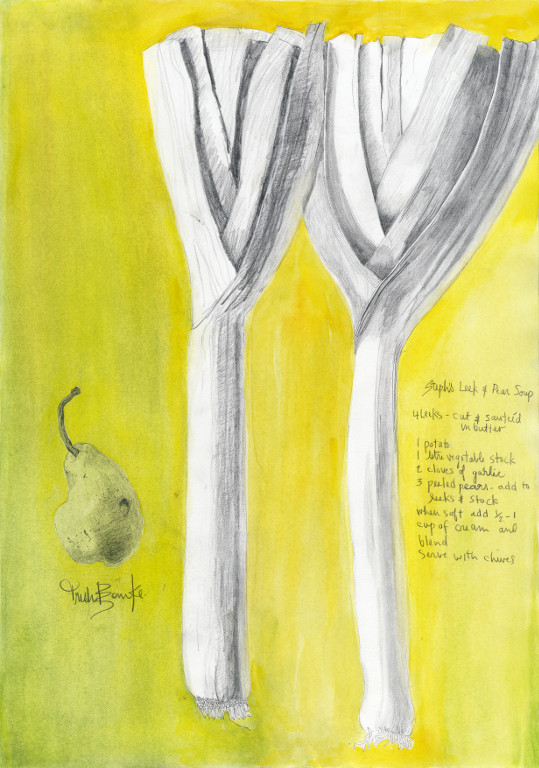 Steph's Leek & Pear Soup
4 leeks - cut & sauteéd
in butter
1 potato
1 litre vegetable stock
2 cloves of garlic
3 peeled pears - add to
leeks & stock
when soft add ½ - 1
cup of cream and
blend
Serve with chives